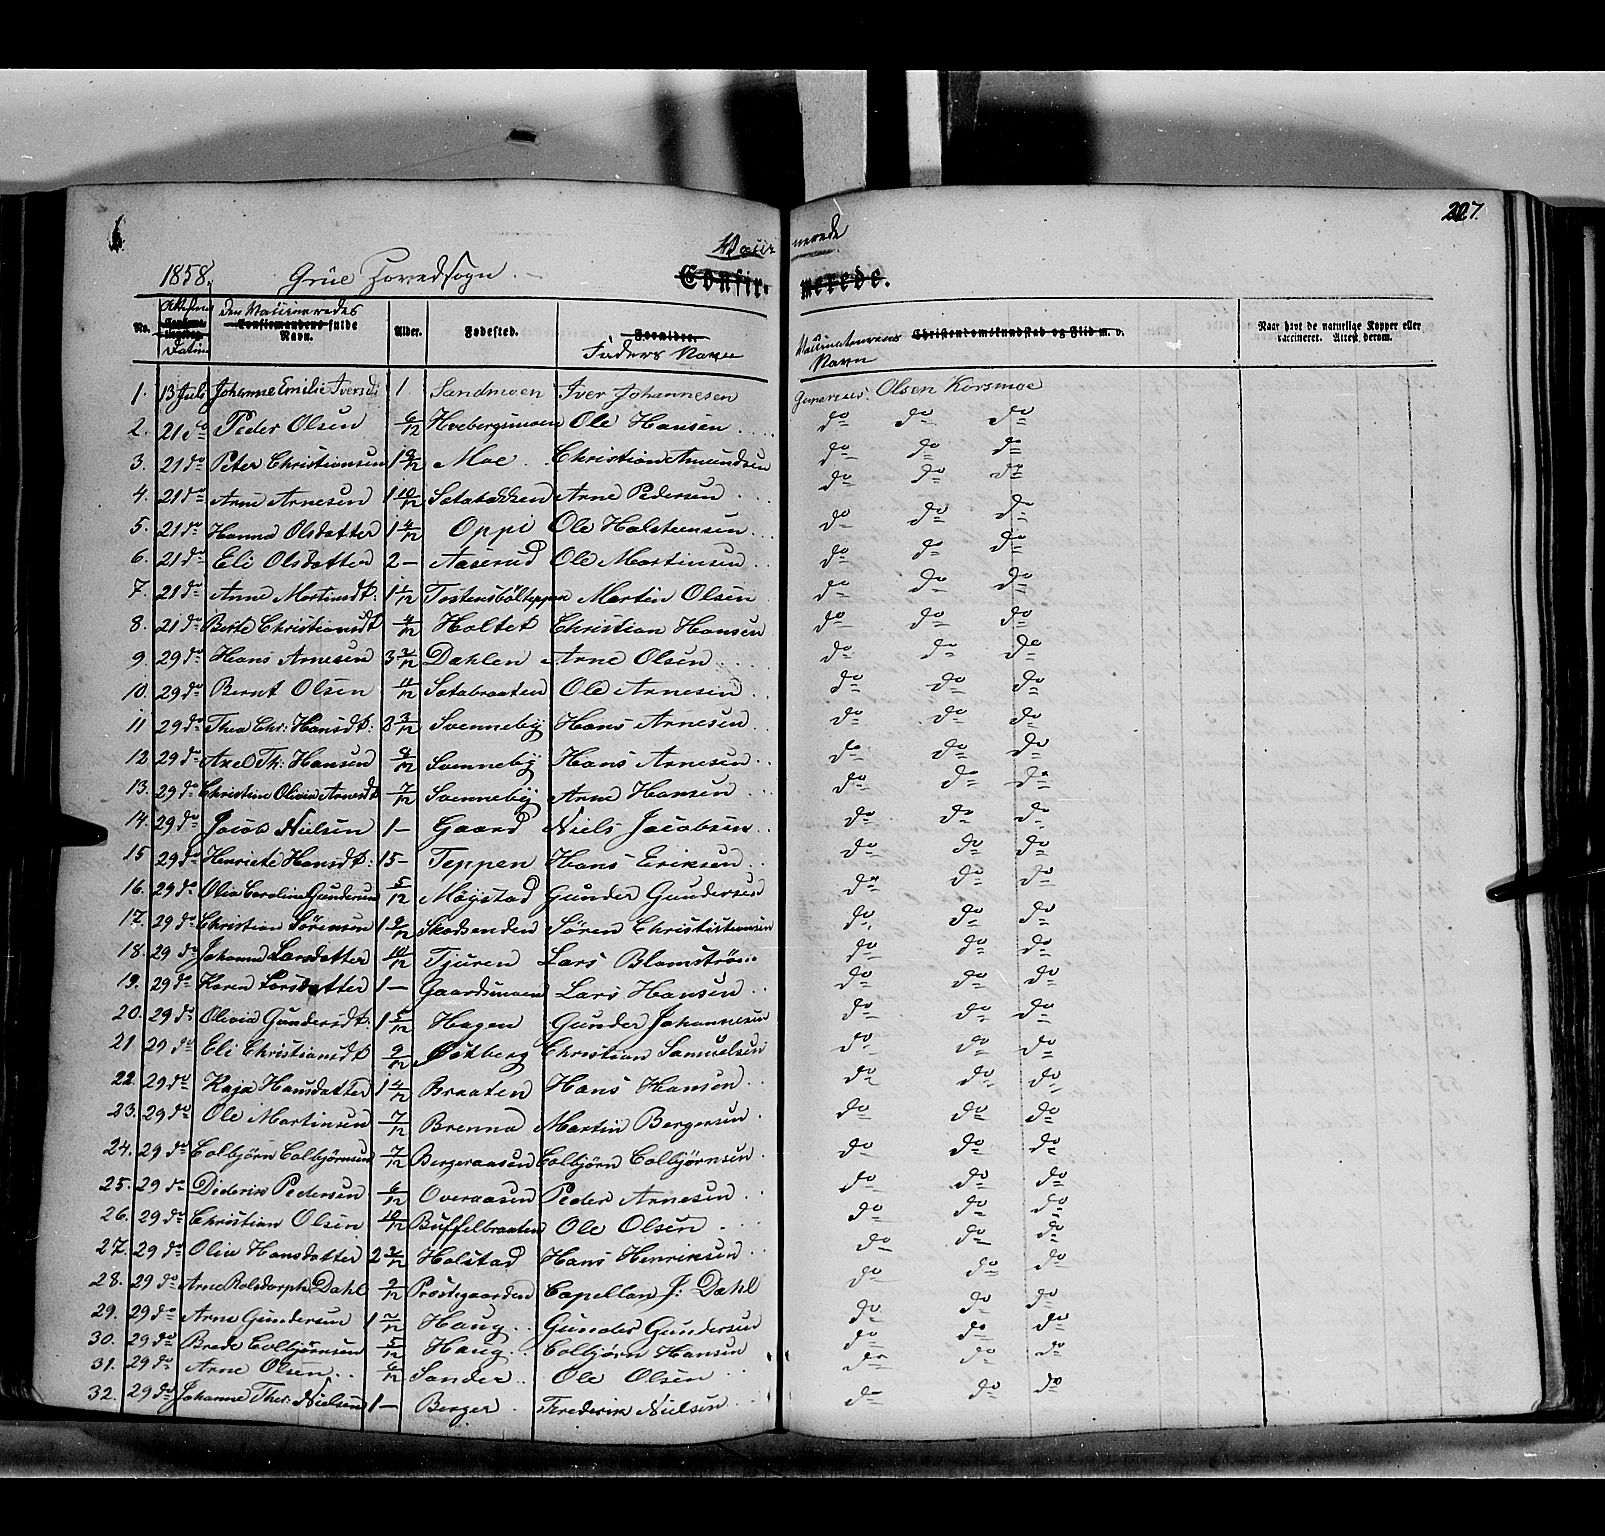 227.
Vacci nerede
1858. Grue Hovedsogn.
Confir- merede.
No. Attestens Datum Den Vaccineredes Confirmandens fulde Navn. Alder. Fødested. Forældre. Faders Navn Vaccinateurens Navn Christendomskundskab og Flid m. v. Naar havt de naturlige Kopper eller vaccineret. Attest derom.
1. 13 Juli Johanne Emilie Iversd. 1. Sandmoen Iver Johannesen Olsen Korsmoe
2. 21 do Peder Olsen 6/12 Hvebergsmoen Ole Hansen do do do
3. 21 do Peter Christiansen 1 9/12 Moe. Christian Amundsen do do do
4. 21 do Arne Arnesen 1 10/12 Satabakken Arne Pedersen do do do
5. 21 do Hanna Olsdatter 1 4/12 Oppi Ole Halstensen do do do
6. 21 do Eli Olsdatter 2 — Aaserud Ole Martinsen do do do
7. 21 do Anne Martinsdt. 1 1/12 Tostensbölteppen Martin Olsen do do do
8. 21 do Berte Christiansdt 4/12 Holtet Christian Hansen do do do
9 29 do Hans Arnesen 3 3/12 Dahlen Arne Olsen do do do
10. 29 do Bernt Olsen 11/12 Satabraaten Ole Arnesen do do do
11 29 do Thea Chr: Hansdt: 3 3/12 Svenneby Hans Arnesen do do do
12 29 do Axel Th: Hansen 9/12 Svenneby Hans Arnesen do do do
13. 29 do Christine Olivia Arnesdt 7/12 Svenneby Arne Hansen do do do
14. 29 do Jacob Nielsen 1 — Gaard Niels Jacobsen do do do
15 29 do Henriete Hansdt: 15 — Teppen Hans Eriksen do do do
16. 29 do Olia Caroline Gundersen 5/12 Møystad Gunder Gundersen do do do
17. 29 do Christian Sörensen 1 9/12 Skodsenden Sören Christistiansen do do do
18. 29 do Johanne Larsdatter 10/12 Tjuren Lars Blomströ do do do
19. 29 do Karen Larsdatter 1 — Gaardsmoen Lars Hansen do do do
20. 29 do Olivia Gundersdt. 1 5/12 Hagen Gunder Johannesen do do do
21 29 do Eli Christiansdt 9/12 Christian Samuelsen do do do
22. 29 do Kaja Hansdatter 1 4/12 Braaten Hans Hansen do do do
23. 29 do Ole Martinsen 7/12 Brenna Martin Bergersen do do do
24. 29 do Colbjörn Colbjørnsen 7/12 Bergeraasen Colbjörn Colbjørnsen do do do
25. 29 do Diderik Pedersen 6/12 Overaasen Peder Arnesen do do do
26. 29 do Christian Olsen 10/12 Buffelbraaten Ole Olsen do do do
27. 29 do Olia Hansdatter 2 3/12 Holstad Hans Henriksen do do do
28. 29 do Arne Rolsdorph Dahl 9/12 Præstegaarden Capellan J: Dahl do do do
29. 29 do Arne Gundersen 1 Haug. Gunder Gundersen do do do
30. 29 do Brede Colbjörnsen 5/12 Haug. Colbjörn Hansen do do do
31. 29 do Arne Olsen 6/12 Sander Ole Olsen do do do
32. 29 do Johanne Ther: Nielsen 1 — Berger Frederik Nielsen do do do